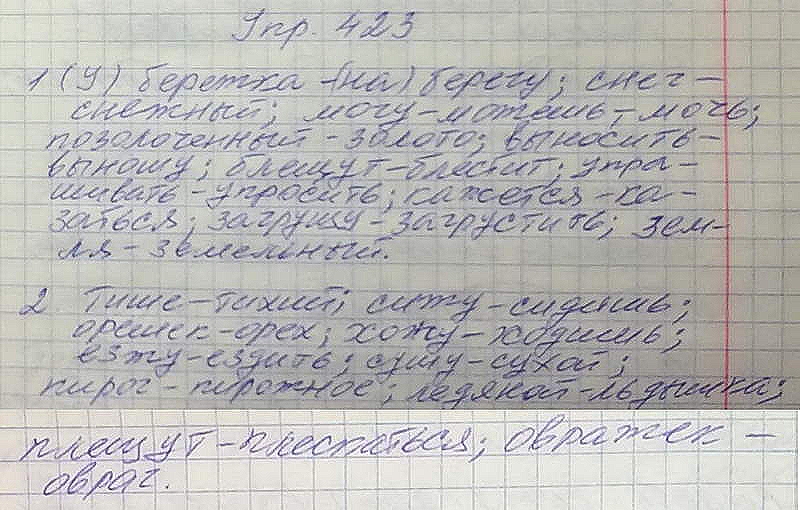 Упр. 423
1 (У) бережка - (на) берегу; снег -
снежный; могу - можешь - мочь;
позолоченный - золото; выносить -
выношу; блещут - блестит; упра-
шивать - упросить; кажется - ка-
заться; загрущу - загрустить; зем-
ля - земельный.
2. Тише - тихий; сижу - сидишь;
орешек - орех; хожу - ходишь;
езжу - ездить; сушу - сухой;
пирог - пирожное; ледяной - льдышка;
плещут - плескаться; овражек -
овраг.